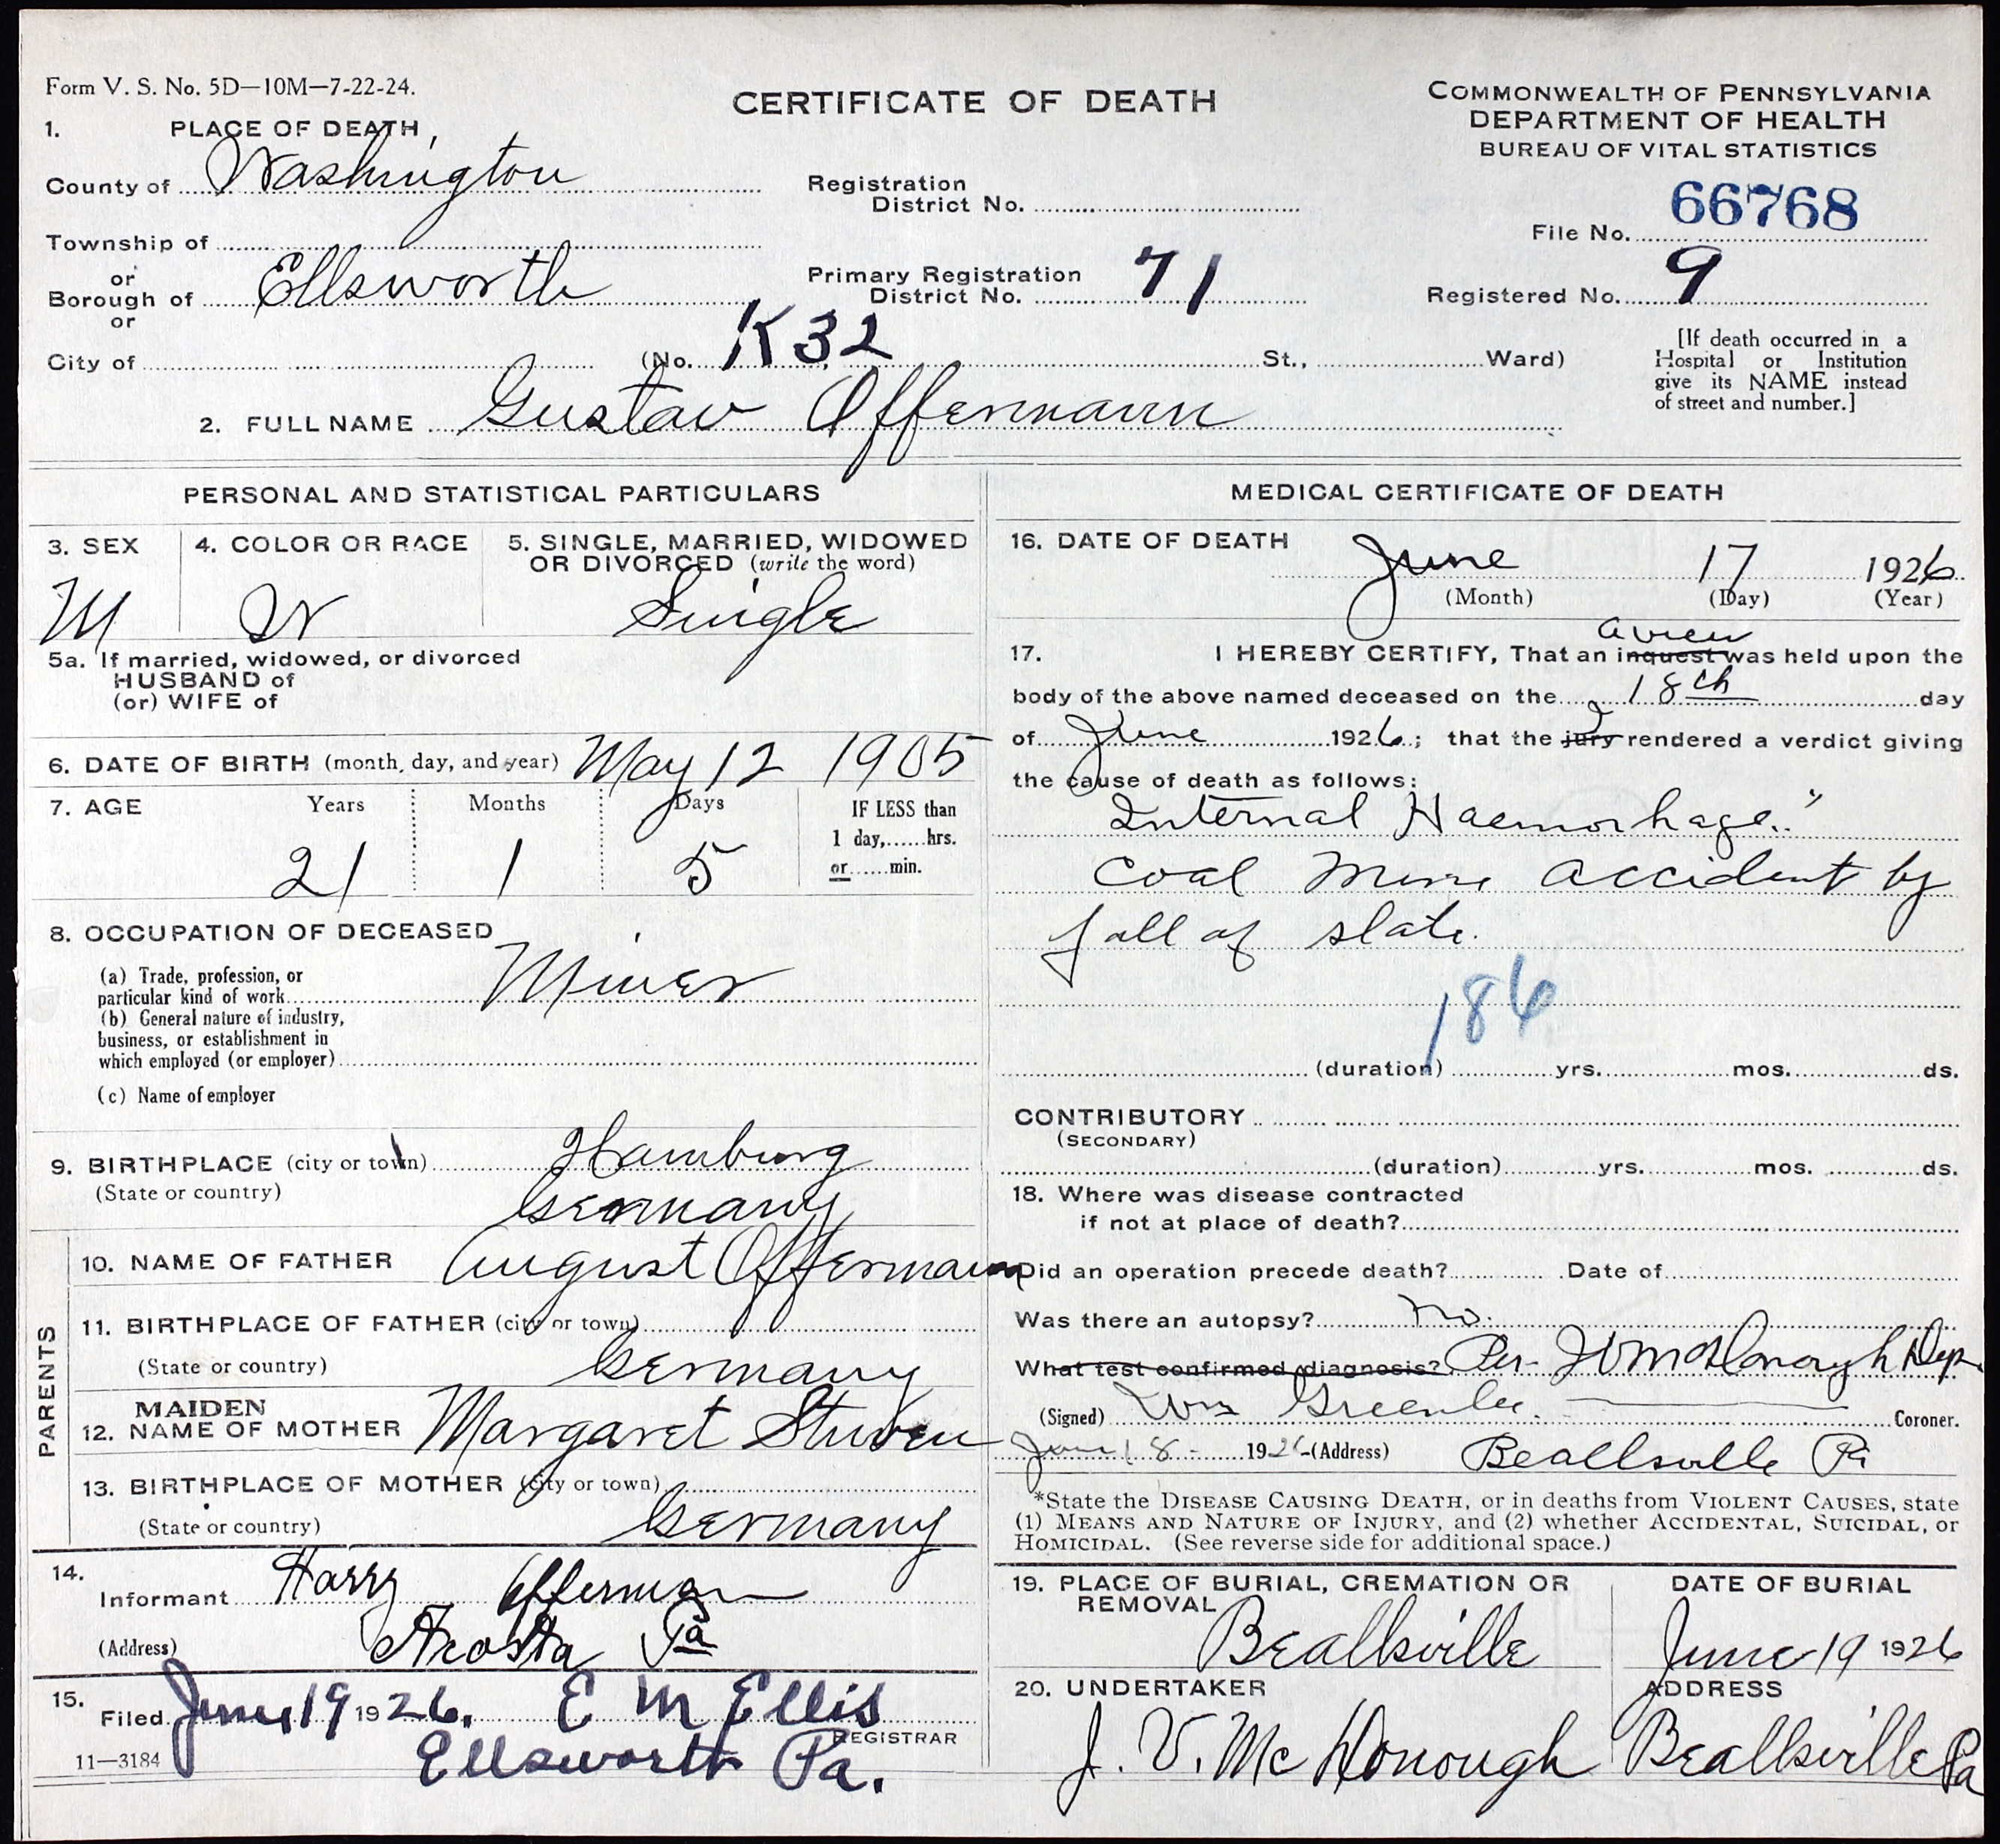 Form V. S. No. 5D—10M—7-22-24.
CERTIFICATE OF DEATH
COMMONWEALTH OF PENNSYLVANIA
DEPARTMENT OF HEALTH
BUREAU OF VITAL STATISTICS
1. PLACE OF DEATH
County of Washington
Registration
District No.
66768
File No.
Township of
or
Borough of Ellsworth
or
Primary Registration
District No. 71
Registered No. 9
City of (No. K32, St., Ward)
[If death occurred in a
Hospital or Institution
give its NAME instead
of street and number.]
2. FULL NAME Gustav Offermann
PERSONAL AND STATISTICAL PARTICULARS
3. SEX
M
4. COLOR OR RACE
W
5. SINGLE, MARRIED, WIDOWED
OR DIVORCED (write the word)
Single
5a. If married, widowed, or divorced
HUSBAND of
(or) WIFE of
6. DATE OF BIRTH (month, day, and year) May 12 1905
7. AGE Years Months Days IF LESS than
1 day,......hrs.
or......min.
21 1 5
8. OCCUPATION OF DECEASED
(a) Trade, profession, or
particular kind of work Miner
(b) General nature of industry,
business, or establishment in
which employed (or employer)
(c) Name of employer
9. BIRTHPLACE (city or town) Hamburg
(State or country) Germany
PARENTS
10. NAME OF FATHER August Offermann
11. BIRTHPLACE OF FATHER (city or town)
(State or country) Germany
12. MAIDEN
NAME OF MOTHER Margaret Stuven
13. BIRTHPLACE OF MOTHER (city or town)
(State or country) Germany
14.
Informant Harry Offerman
(Address) Acosta Pa
15.
Filed June 19 1926. E M Ellis
REGISTRAR
11—3184
Ellsworth Pa.
MEDICAL CERTIFICATE OF DEATH
16. DATE OF DEATH
June 17 1926
(Month) (Day) (Year)
a view
17. I HEREBY CERTIFY, That an inquest was held upon the
body of the above named deceased on the 18th day
I
of June 1926; that the jury rendered a verdict giving
the cause of death as follows:
Internal Haemorhage."
Coal Mine accident by
fall of slate.
186
(duration) yrs. mos. ds.
CONTRIBUTORY
(SECONDARY)
(duration) yrs. mos. ds.
18. Where was disease contracted
if not at place of death?
Did an operation precede death? Date of
Was there an autopsy? no.
What test confirmed diagnosis? Per- J V McDonough Dep.
(Signed) Wm Greenlee. Coroner.
June 18- 1926-(Address) Beallsville Pa
*State the DISEASE CAUSING DEATH, or in deaths from VIOLENT CAUSES, state
(1) MEANS AND NATURE OF INJURY, and (2) whether ACCIDENTAL, SUICIDAL, or
HOMICIDAL. (See reverse side for additional space.)
19. PLACE OF BURIAL, CREMATION OR
REMOVAL
Beallsville
DATE OF BURIAL
June 19 1926
20. UNDERTAKER
J. V. McDonough
ADDRESS
Beallsville Pa